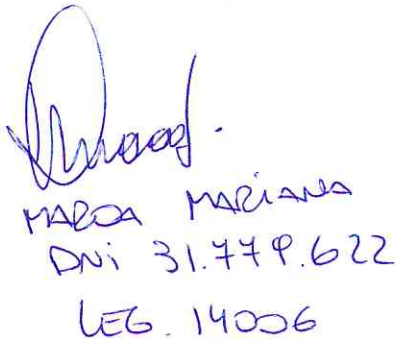 MARIANA
DNi 31.779.622
LEG. 14006